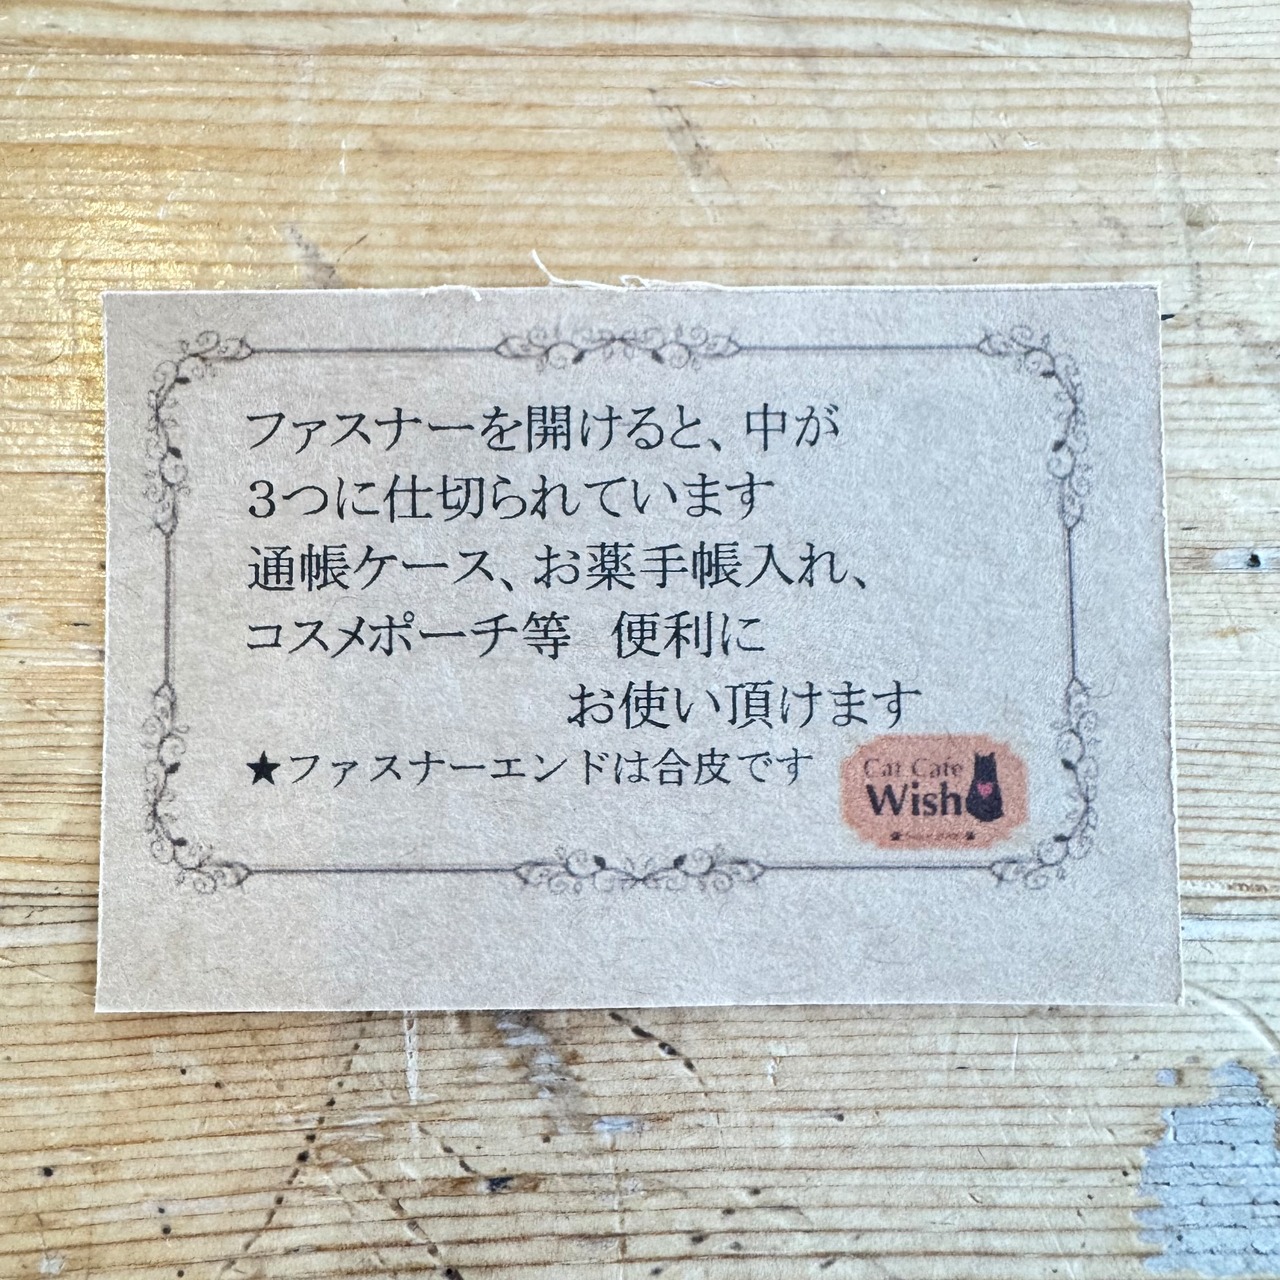 ファスナーを開けると、中が
３つに仕切られています
通帳ケース、お薬手帳入れ、
コスメポーチ等　便利に
お使い頂けます
★ファスナーエンドは合皮です
Cat Cafe
Wish